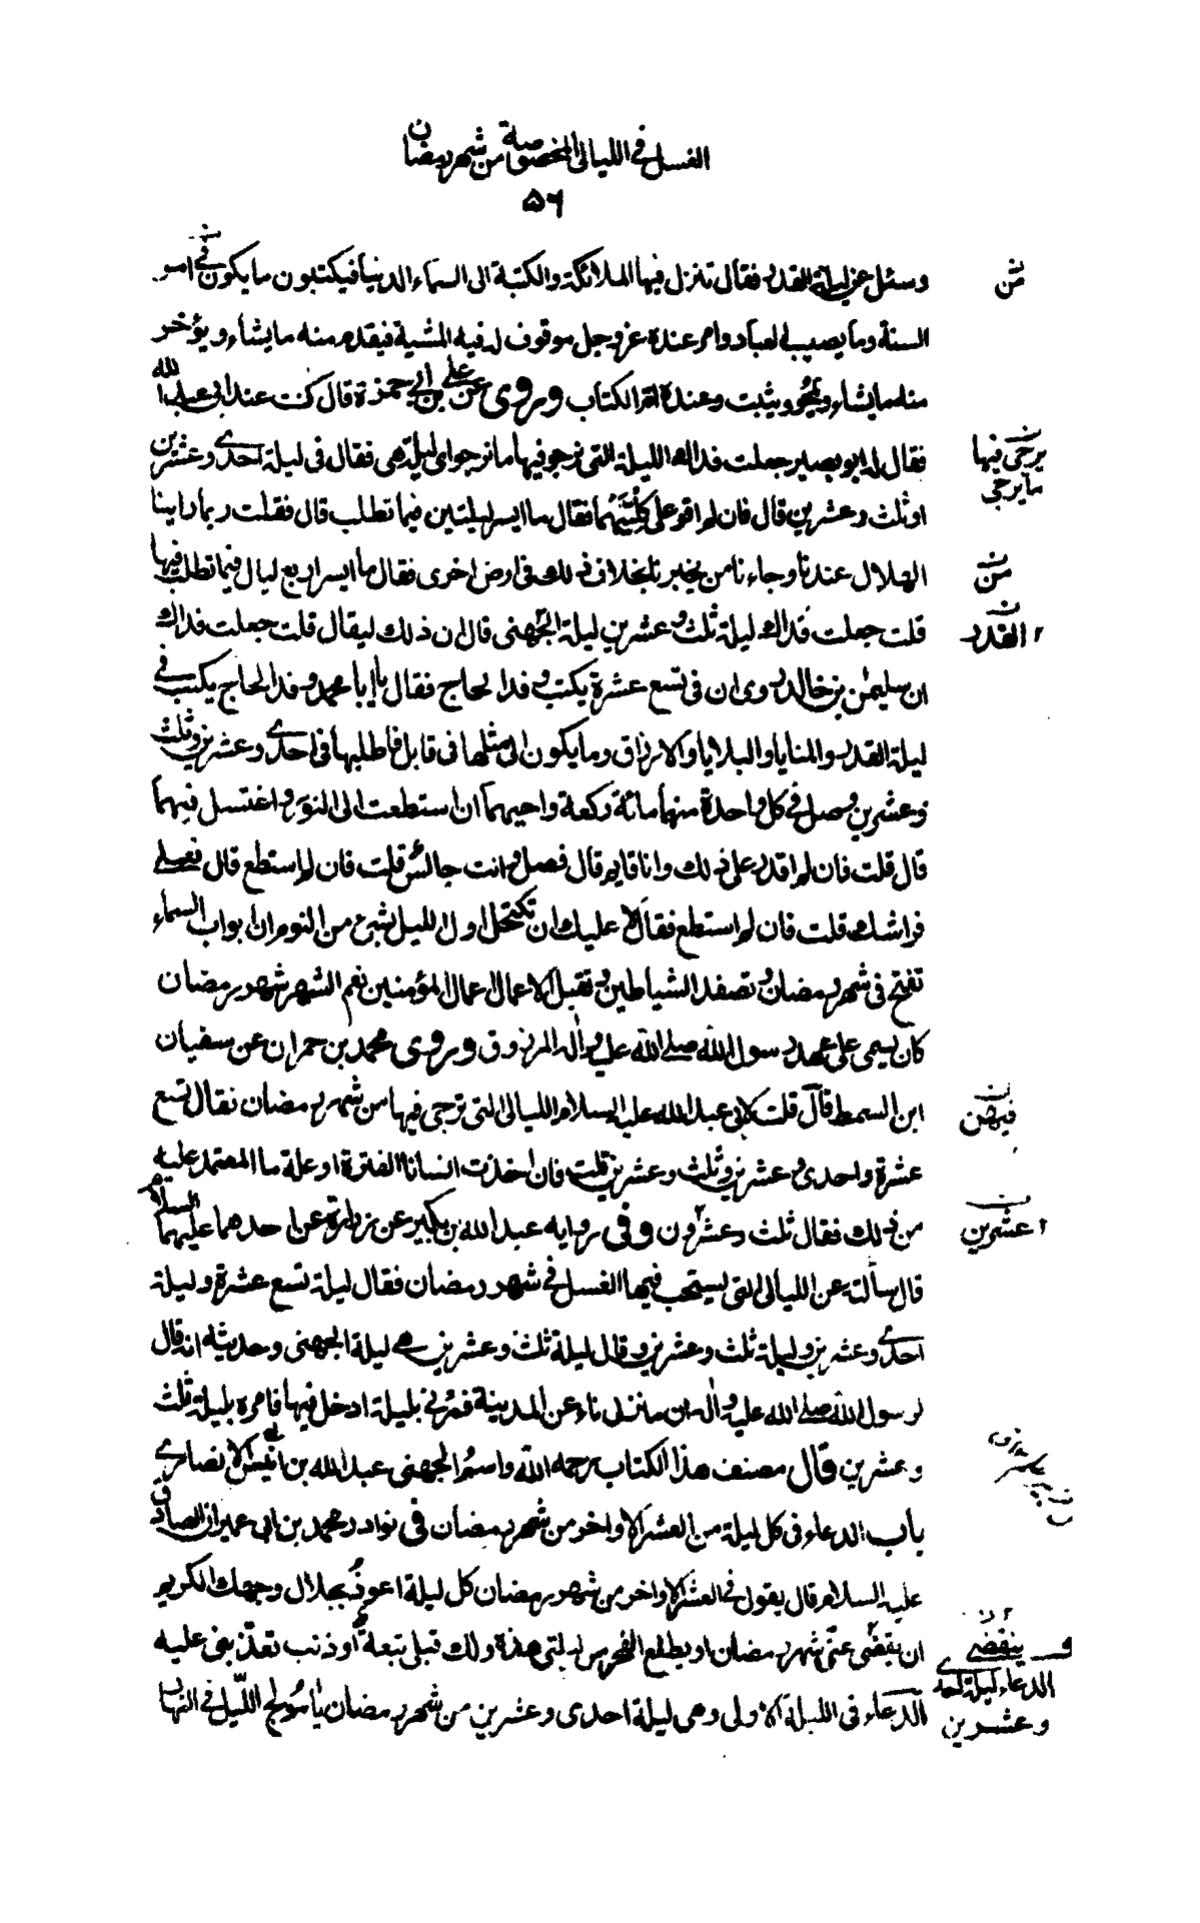 الغسل في الليالي المخصوصة من شهر رمضان
٥٦
وسئل عن ليلة القدر فقال تنزل فيها الملائكة والكتبة الى السماء الدنيا فيكتبون ما يكون في امر
السنة وما يصيب العباد وامر عنده عز وجل موقوف له فيه المشية فيقدم منه ما يشاء ويؤخر
منه ما يشاء ويمحو ويثبت وعنده ام الكتاب وروى عن علي بن ابي حمزة قال كنت عند ابي عبد الله
فقال له ابو بصير جعلت فداك الليلة التي نرجو فيها ما نرجو اي ليلة هي فقال في ليلة احدى وعشرين
يرجى فيها
ما يرجى
او ثلث وعشرين قال فان لم اقو على كلتيهما فقال ما ايسر ليلتين فيما تطلب قال فقلت ربما راينا
الهلال عندنا وجاءنا من يخبرنا بخلاف ذلك في ارض اخرى فقال ما ايسر اربع ليال فيما تطلب فيها
قلت جعلت فداك ليلة ثلث وعشرين ليلة الجهني قال ان ذلك ليقال قلت جعلت فداك
القدر
ان سليمن بن خالد روى ان في تسع عشرة يكتب وفد الحاج فقال يا ابا محمد وفد الحاج يكتب في
ليلة القدر والمنايا والبلايا والارزاق وما يكون الى مثلها في قابل فاطلبها في احدى وعشرين وثلث
وعشرين وصل في كل واحدة منهما مائة ركعة واحيهما ان استطعت الى النور واغتسل فيهما
قال قلت فان لم اقدر على ذلك وانا قايم قال فصل وانت جالس قلت فان لم استطع قال فعلى
فراشك قلت فان لم استطع فقال لا عليك ان تكتحل اول الليل بشئ من النوم ان ابواب السماء
تفتح في شهر رمضان وتصفد الشياطين وتقبل الاعمال اعمال المؤمنين نعم الشهر شهر رمضان
كان يسمى على عهد رسول الله صلى الله عليه وآله المرزوق وروى محمد بن حمران عن سفيان
ابن السمط قال قلت لابي عبد الله عليه السلام الليالي التي ترجى فيها من شهر رمضان فقال تسع
فيهن
عشرة واحدى وعشرين وثلث وعشرين قلت فان اخذت انسانا الفترة او علة ما المعتمد عليه
من ذلك فقال ثلث وعشرون وفي رواية عبد الله بن بكير عن زرارة عن احدهما عليهما السلام
عشرين
قال سألته عن الليالي التي يستحب فيها الغسل في شهر رمضان فقال ليلة تسع عشرة وليلة
احدى وعشرين وليلة ثلث وعشرين وقال ليلة ثلث وعشرين هي ليلة الجهني وحديثه انه قال
لرسول الله صلى الله عليه وآله ان منزلي ناء عن المدينة فمرني بليلة ادخل فيها فامره بليلة ثلث
وعشرين قال مصنف هذا الكتاب رحمه الله واسم الجهني عبد الله بن انيس الانصاري
باب الدعاء في كل ليلة من العشر الاواخر من شهر رمضان في نوادر محمد بن ابي عمير ان الصادق
عليه السلام قال يقول في العشر الاواخر من شهر رمضان كل ليلة اعوذ بجلال وجهك الكريم
ان ينقضي عني شهر رمضان او يطلع الفجر من ليلتي هذه ولك قبلي تبعة او ذنب تعذبني عليه
ينقضي
الدعاء في الليلة الاولى وهي ليلة احدى وعشرين من شهر رمضان يا مولج الليل في النهار
الدعاء ليلة احدى
وعشرين